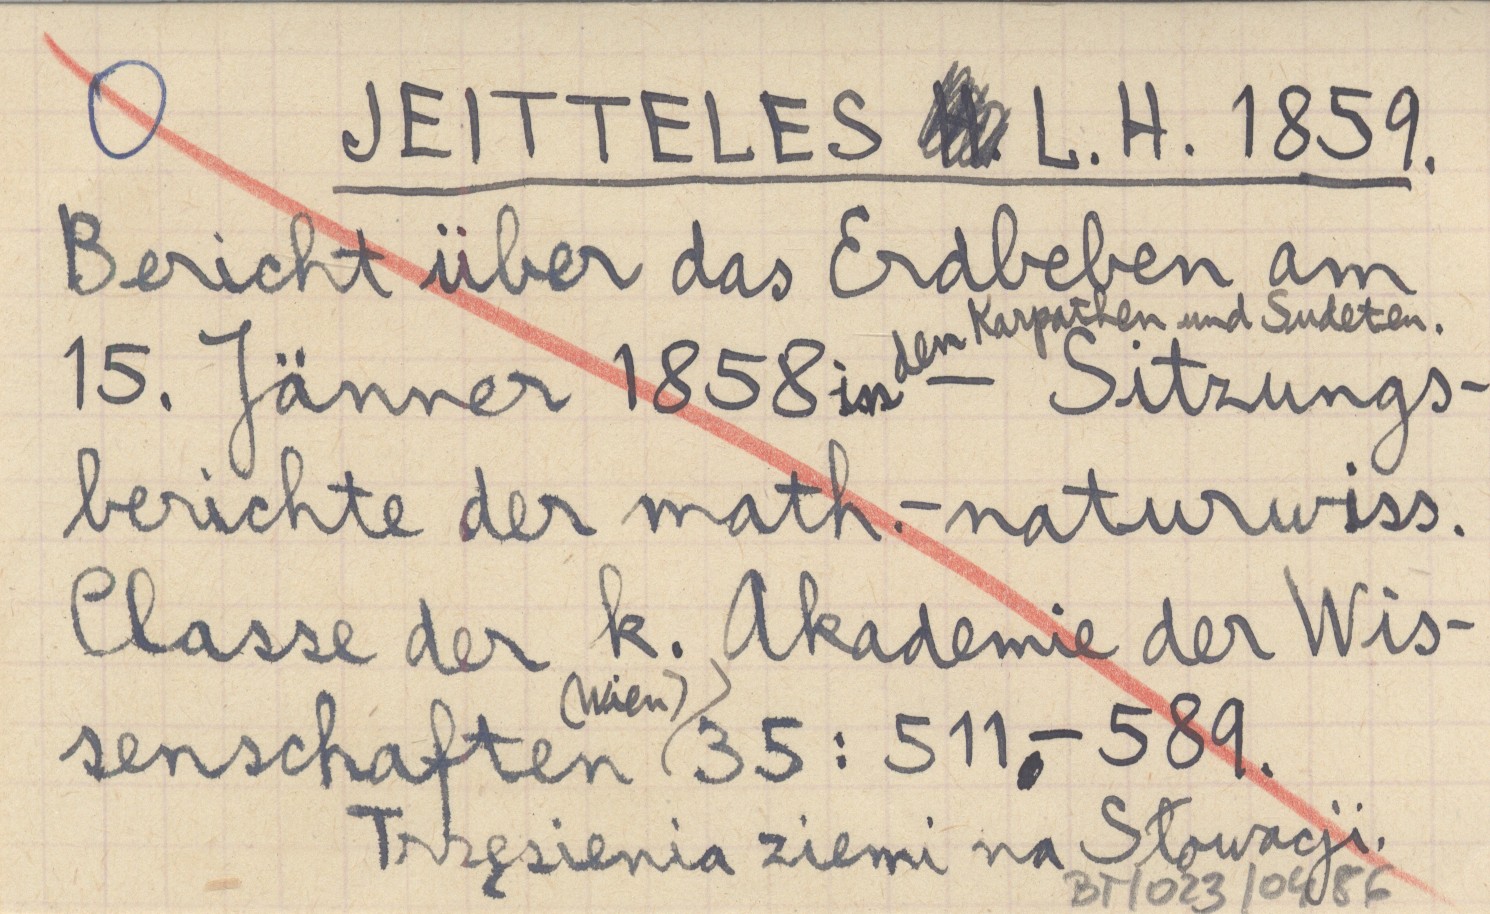 JEITTELES L. H. 1859.
Bericht über das Erdbeben am
den Karpathen und Sudeten.
15. Jänner 1858 in — Sitzungs-
berichte der math.-naturwiss.
Classe der k. Akademie der Wis-
(Wien)
senschaften 35: 511 - 589.
Trzęsienia ziemi na Słowacji.
BT/023/04/86